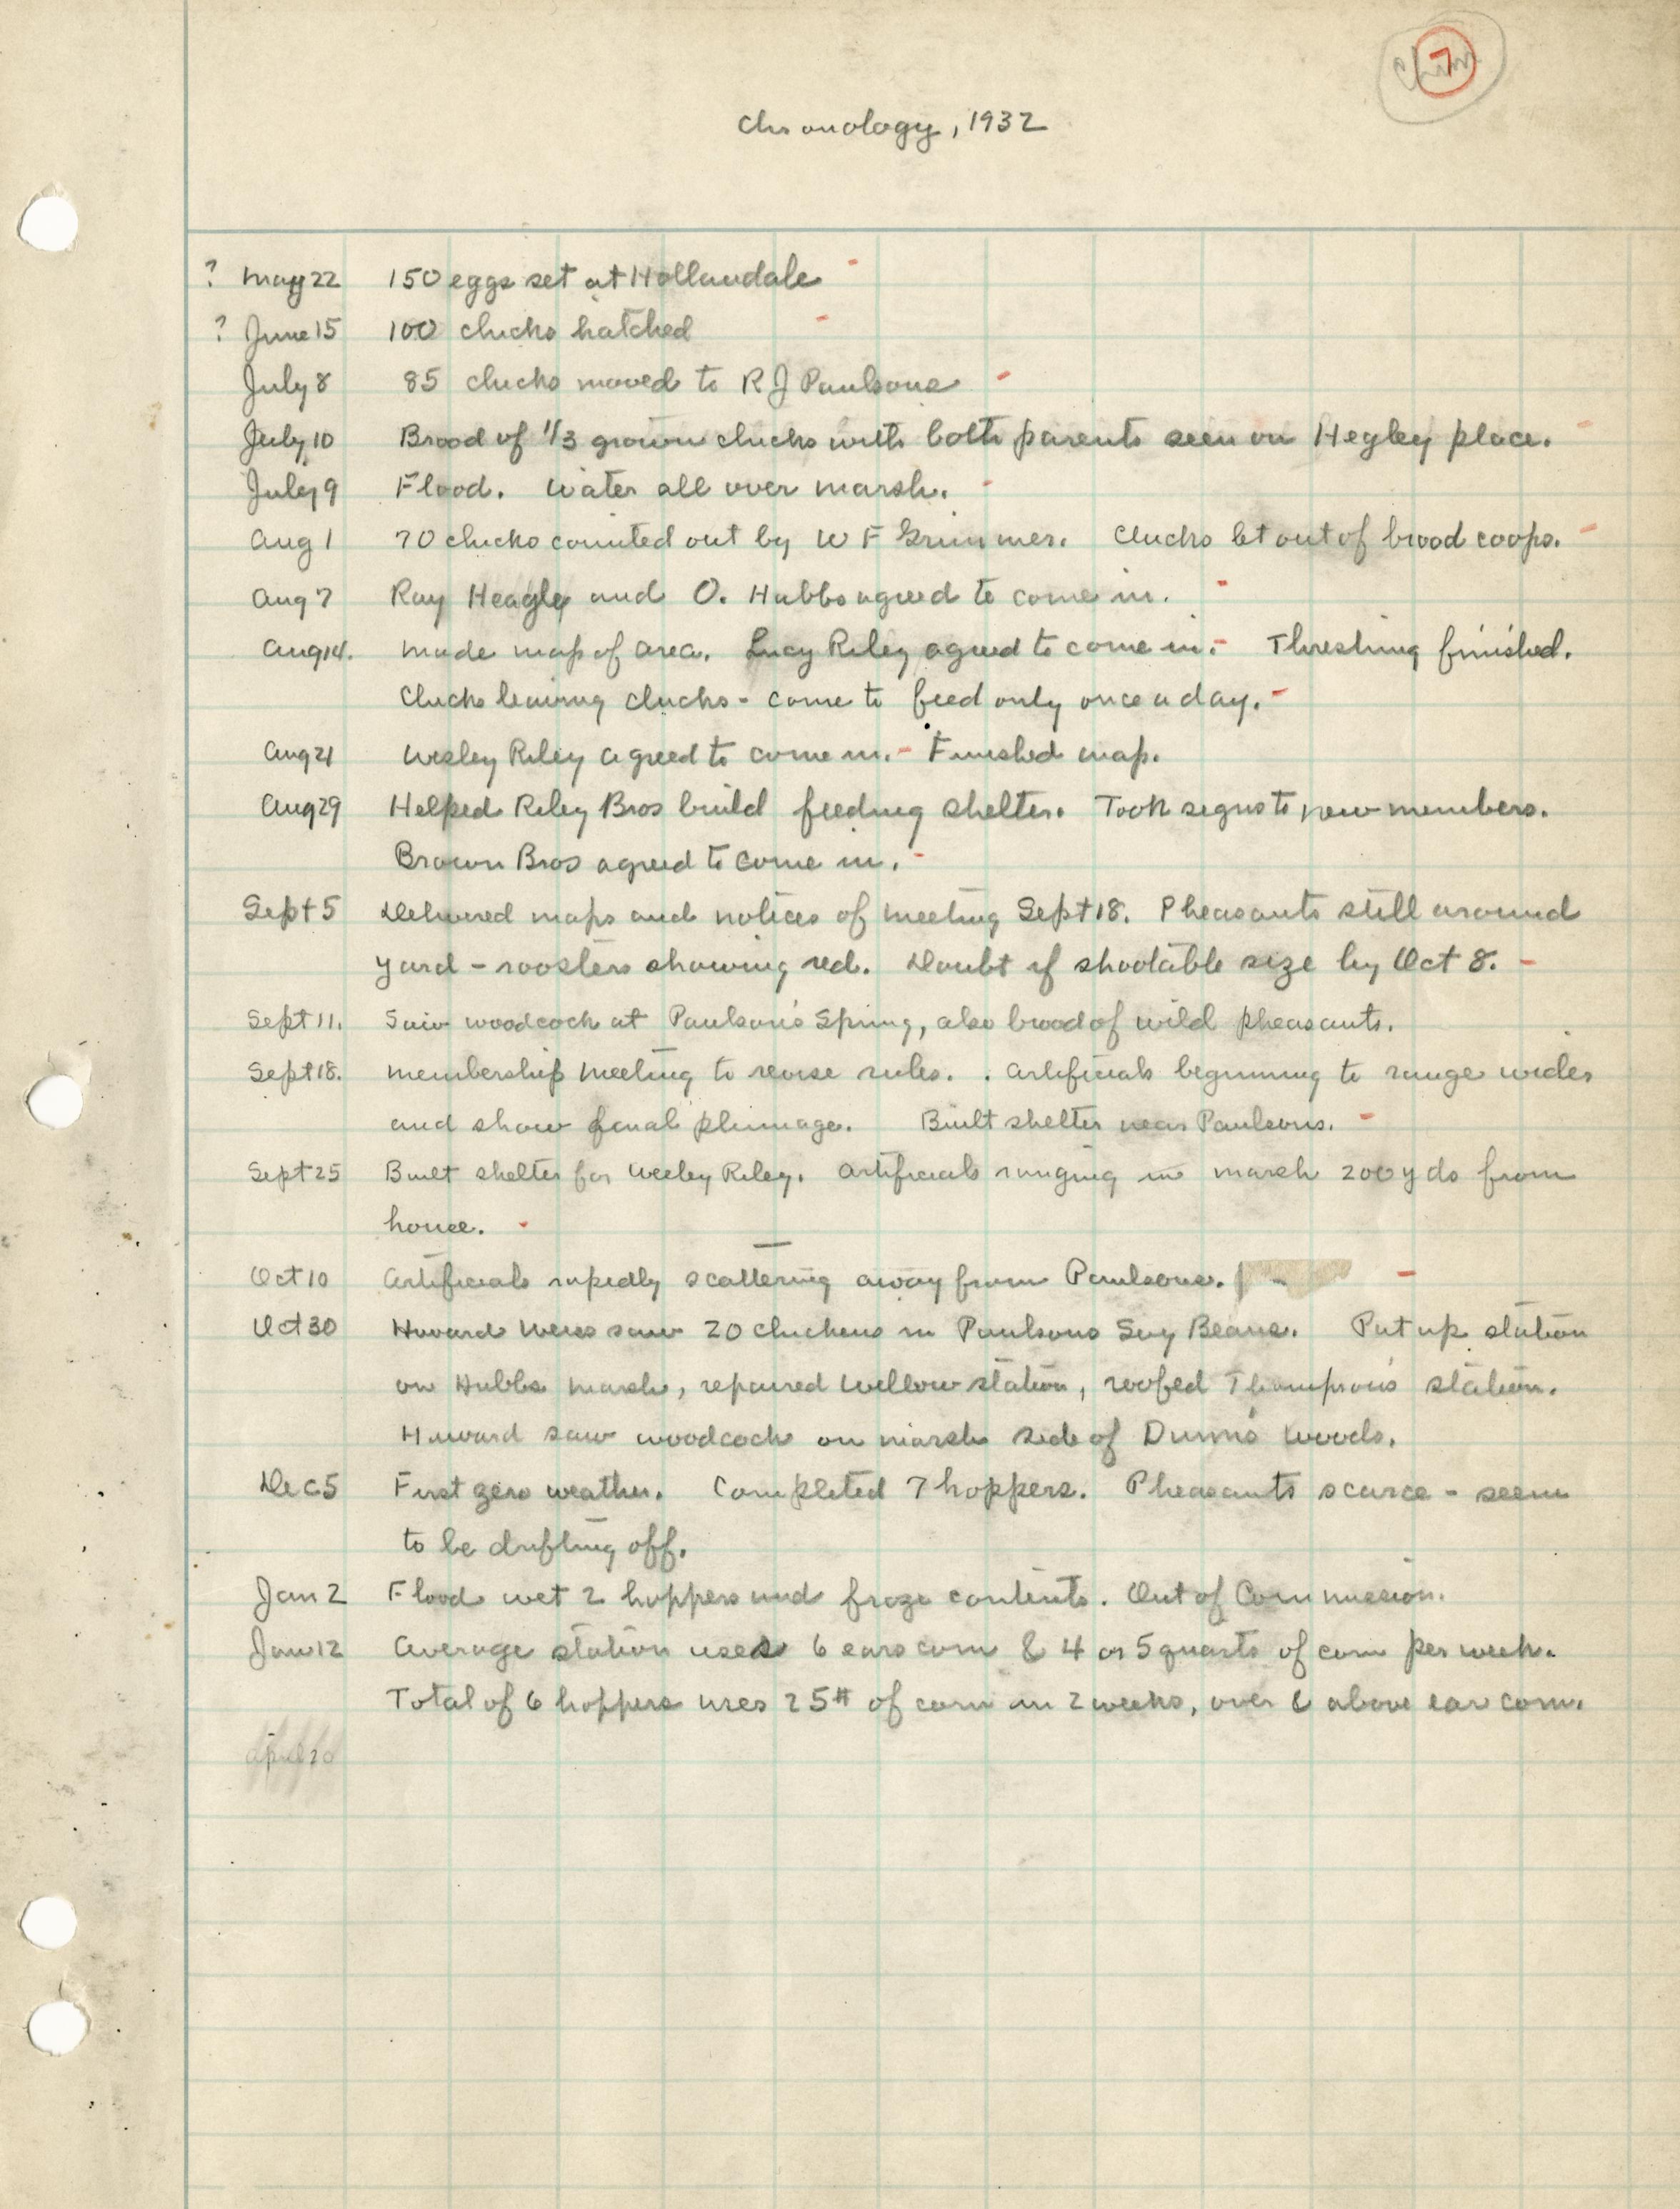 7
Chronology, 1932
? May 22 150 eggs set at Hollandale
? June 15 100 chicks hatched
July 8 85 chicks moved to R J Paulsons
July 10 Brood of 1/3 grown chicks with both parents seen on Hegley place.
July 9 Flood. Water all over marsh.
Aug 1 70 chicks counted out by W F Grimmer. Chicks let out of brood coops.
Aug 7 Ray Heagley and O. Hubbs agreed to come in.
Aug 14. Made map of area. Lucy Riley agreed to come in. - Threshing finished.
Chicks leaving clucks - come to feed only once a day. -
Aug 21 Wesley Riley agreed to come in. - Finished map.
Aug 29 Helped Riley Bros build feeding shelter. Took signs to new members.
Brown Bros agreed to come in. -
Sept 5 Delivered maps and notices of meeting Sept 18. Pheasants still around
yard - roosters showing red. Doubt if shootable size by Oct 8. -
Sept 11. Saw woodcock at Paulson's Spring, also brood of wild pheasants.
Sept 18. Membership meeting to revise rules. . Artificials beginning to range wider
and show final plumage. Built shelter near Paulsons. -
Sept 25 Built shelter for Wesley Riley. Artificials ranging in marsh 200 yds from
house. -
Oct 10 Artificials rapidly scattering away from Paulsons. -
Oct 30 Howard Weiss saw 20 chickens in Paulsons Soy Beans. Put up station
on Hubbs marsh, repaired Willow station, roofed Thompson's station.
Howard saw woodcock on marsh side of Dunn's Woods.
Dec 5 First zero weather. Completed 7 hoppers. Pheasants scarce - seem
to be drifting off.
Jan 2 Flood wet 2 hoppers and froze contents. Out of Commission.
Jan 12 Average station uses 6 ears corn & 4 or 5 quarts of corn per week.
Total of 6 hoppers uses 25# of corn in 2 weeks, over & above ear corn.
April 20